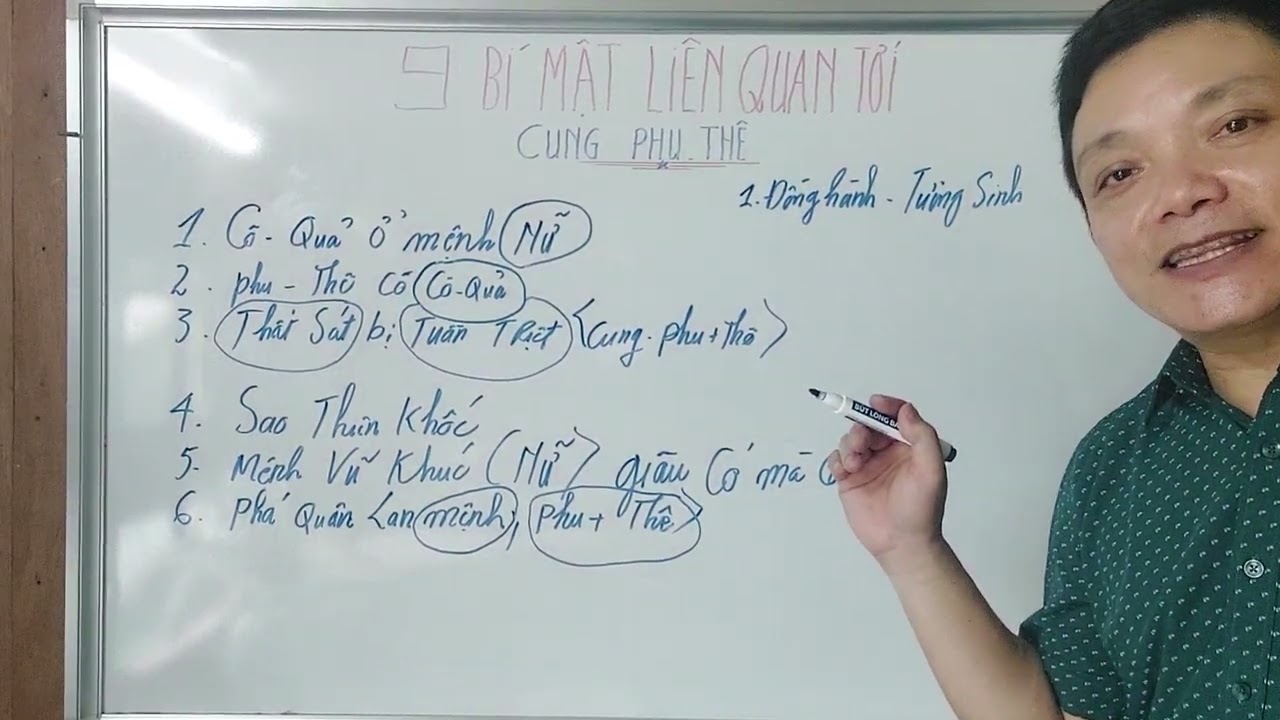 9 BÍ MẬT LIÊN QUAN TỚI
CUNG PHU-THÊ
1. Đồng hành - Tương Sinh
1. Cô - Quả ở mệnh Nữ
2. phu - Thê có Cô-Quả
3. Thất Sát bị Tuần Triệt <Cung phu+thê>
4. Sao Thiên Khốc
5. Mệnh Vũ Khúc (Nữ> giàu Có mà
6. Phá Quân <an mệnh, phu+ Thê>
BÚT LÔNG